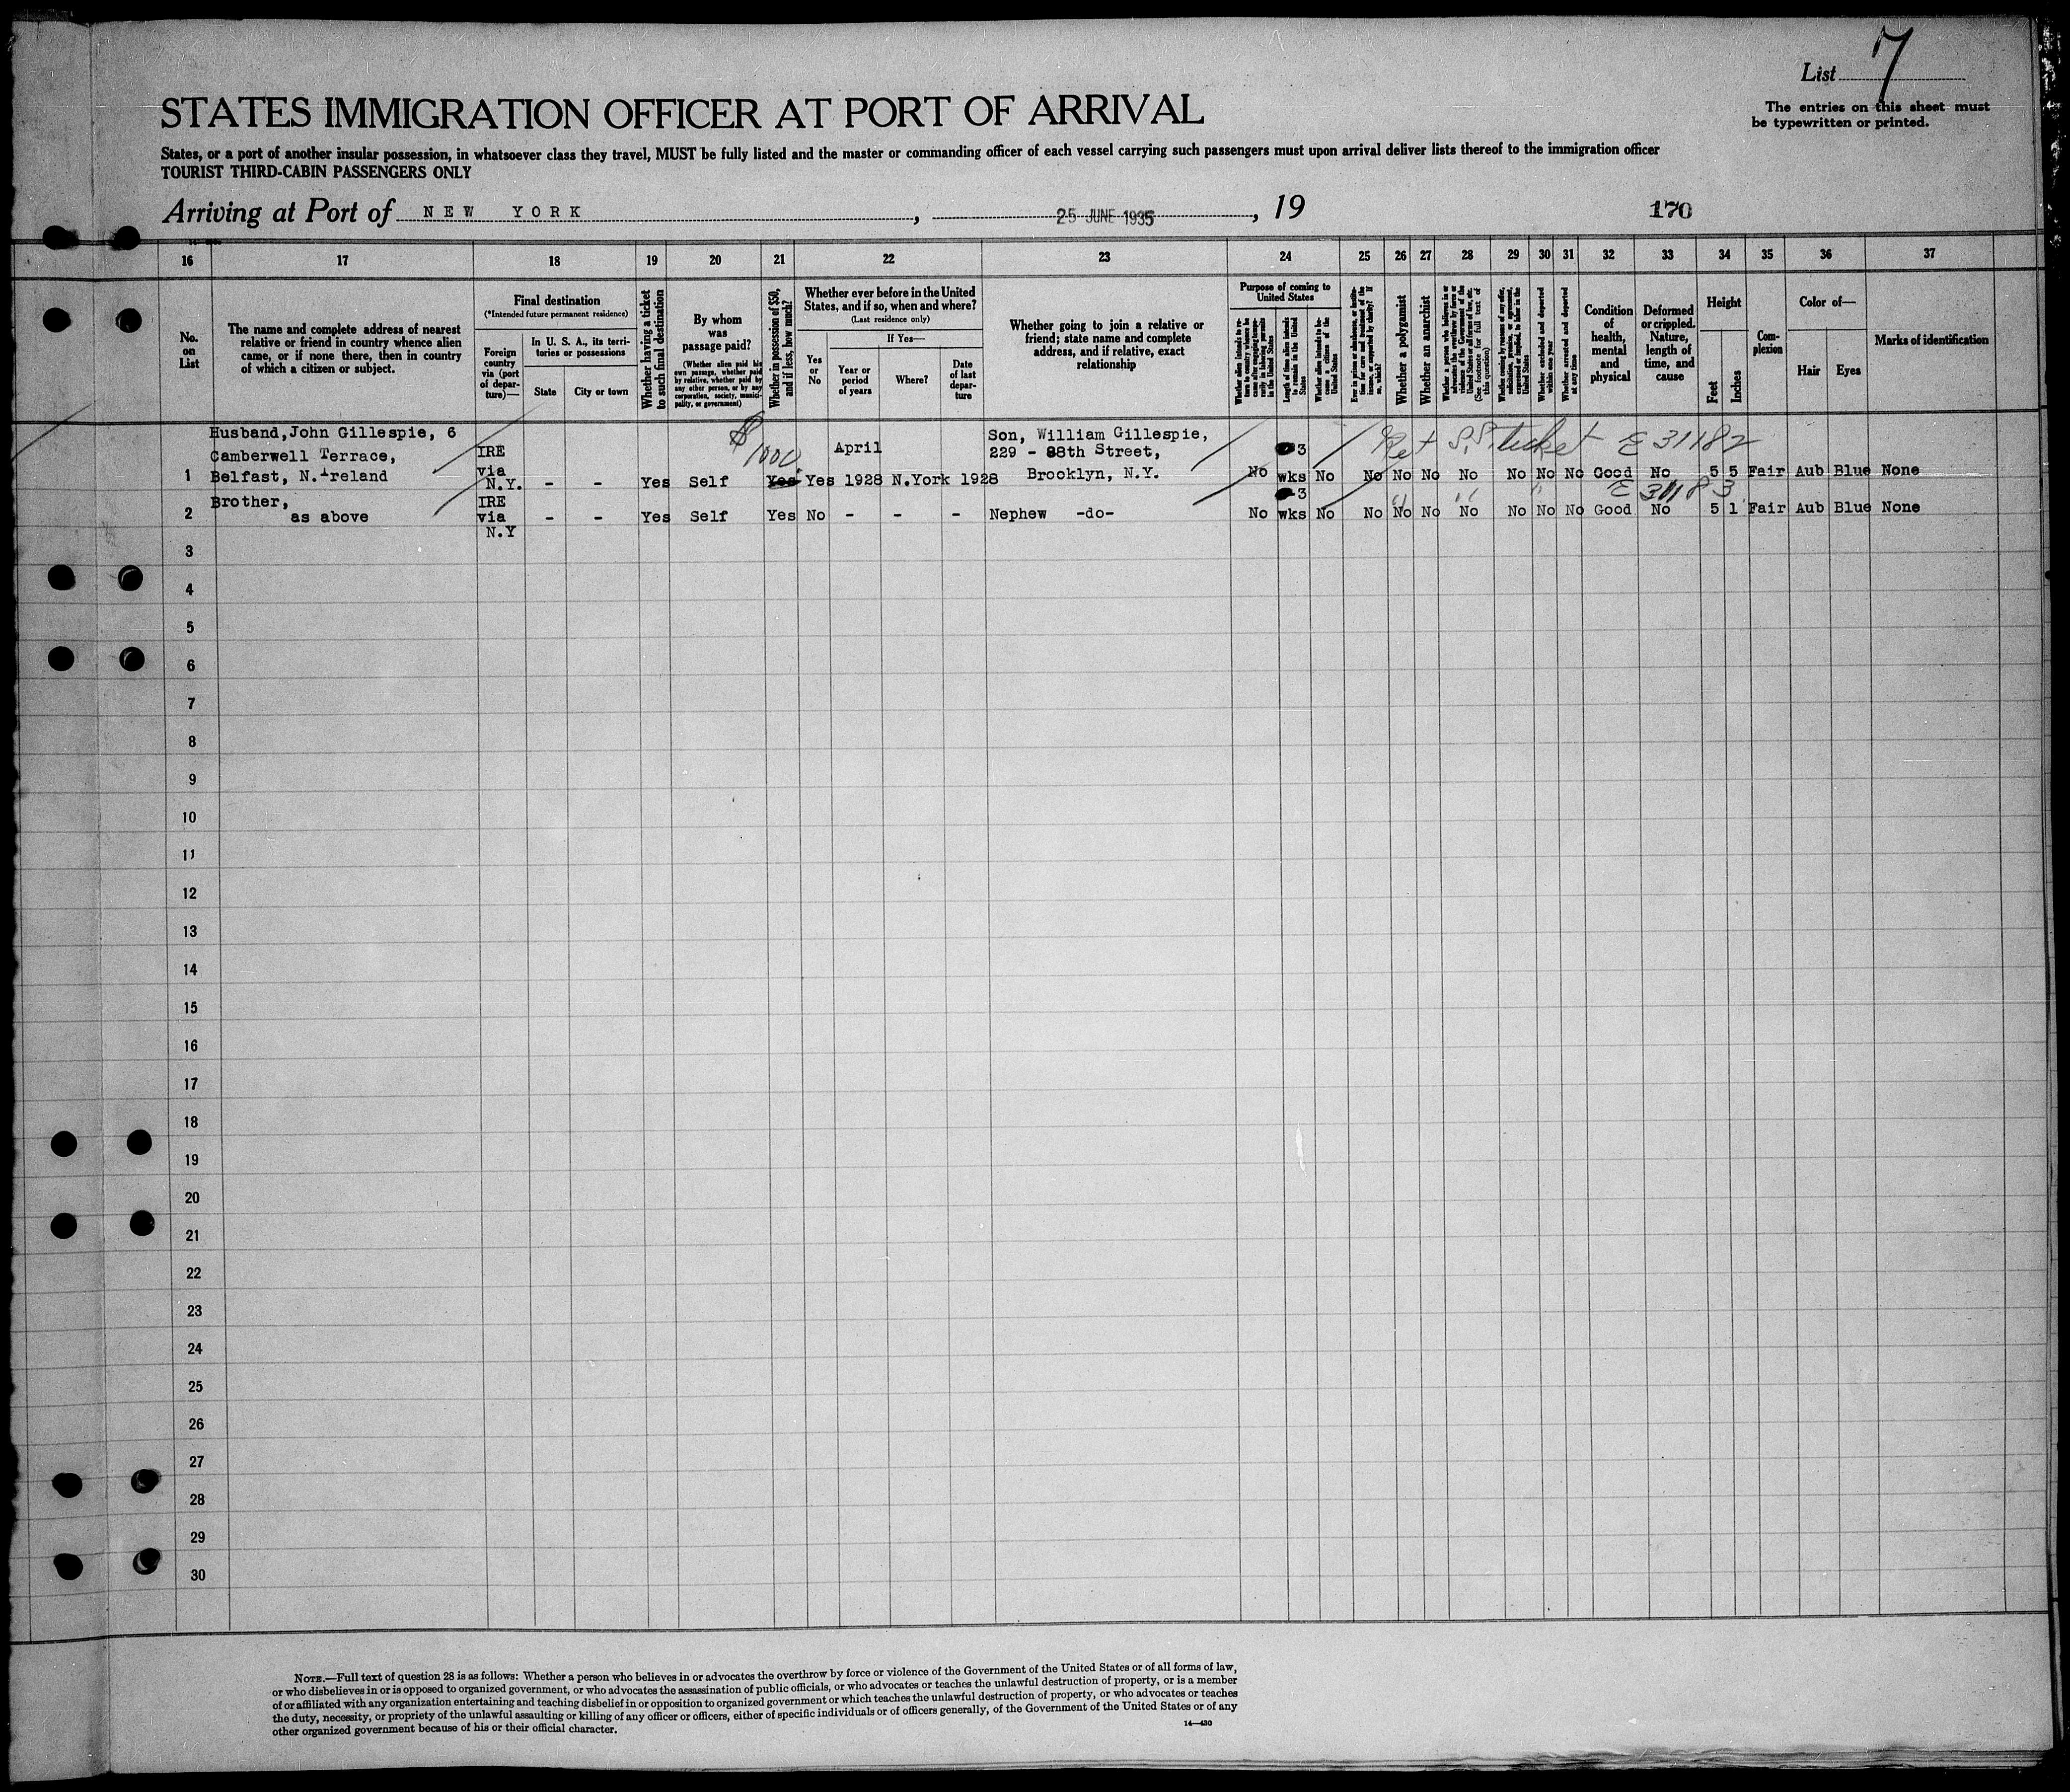 List 7
The entries on this sheet must
be typewritten or printed.
STATES IMMIGRATION OFFICER AT PORT OF ARRIVAL
States, or a port of another insular possession, in whatsoever class they travel, MUST be fully listed and the master or commanding officer of each vessel carrying such passengers must upon arrival deliver lists thereof to the immigration officer
TOURIST THIRD-CABIN PASSENGERS ONLY
Arriving at Port of NEW YORK, 25 JUNE 1935, 19
170
16 17 18 19 20 21 22 23 24 25 26 27 28 29 30 31 32 33 34 35 36 37
No.
on
List
The name and complete address of nearest
relative or friend in country whence alien
came, or if none there, then in country
of which a citizen or subject.
Final destination
(*Intended future permanent residence)
Foreign
country
via (port
of depar-
ture)—
In U. S. A., its terri-
tories or possessions
State
City or town
Whether having a ticket
to such final destination
By whom
was
passage paid?
(Whether alien paid his
own passage, whether paid
by relative, whether paid by
any other person, or by any
corporation, society, munici-
pality, or government)
Whether in possession of $50,
and if less, how much?
Whether ever before in the United
States, and if so, when and where?
(Last residence only)
Yes
or
No
If Yes—
Year or
period
of years
Where?
Date
of last
depar-
ture
Whether going to join a relative or
friend; state name and complete
address, and if relative, exact
relationship
Purpose of coming to
United States
Length of time alien intends
to remain in the United
States
Whether alien intends to be-
come a citizen of the
United States
Whether a polygamist
Whether an anarchist
(See footnote for full text of
this question)
Whether excluded and deported
within one year
Whether arrested and deported
at any time
Condition
of
health,
mental
and
physical
Deformed
or crippled.
Nature,
length of
time, and
cause
Height
Feet
Inches
Com-
plexion
Color of—
Hair
Eyes
Marks of identification
Husband, John Gillespie, 6
Camberwell Terrace,
Belfast, N. Ireland
1
IRE
via
N.Y.
- - Yes Self $1000 Yes Yes April 1928 N.York 1928
Son, William Gillespie,
229 - 88th Street,
Brooklyn, N.Y.
No 3 wks No No No No No No No No Good No 5 5 Fair Aub Blue None
Ret S.S. ticket E 31182
2
Brother,
as above
IRE
via
N.Y
- - Yes Self Yes No - - - Nephew -do- No 3 wks No No No No No No No No Good No 5 1 Fair Aub Blue None
" " " E 31183
3
4
5
6
7
8
9
10
11
12
13
14
15
16
17
18
19
20
21
22
23
24
25
26
27
28
29
30
NOTE.—Full text of question 28 is as follows: Whether a person who believes in or advocates the overthrow by force or violence of the Government of the United States or of all forms of law,
or who disbelieves in or is opposed to organized government, or who advocates the assassination of public officials, or who advocates or teaches the unlawful destruction of property, or is a member
of or affiliated with any organization entertaining and teaching disbelief in or opposition to organized government or which teaches the unlawful destruction of property, or who advocates or teaches
the duty, necessity, or propriety of the unlawful assaulting or killing of any officer or officers, either of specific individuals or of officers generally, of the Government of the United States or of any
other organized government because of his or their official character.
14—430